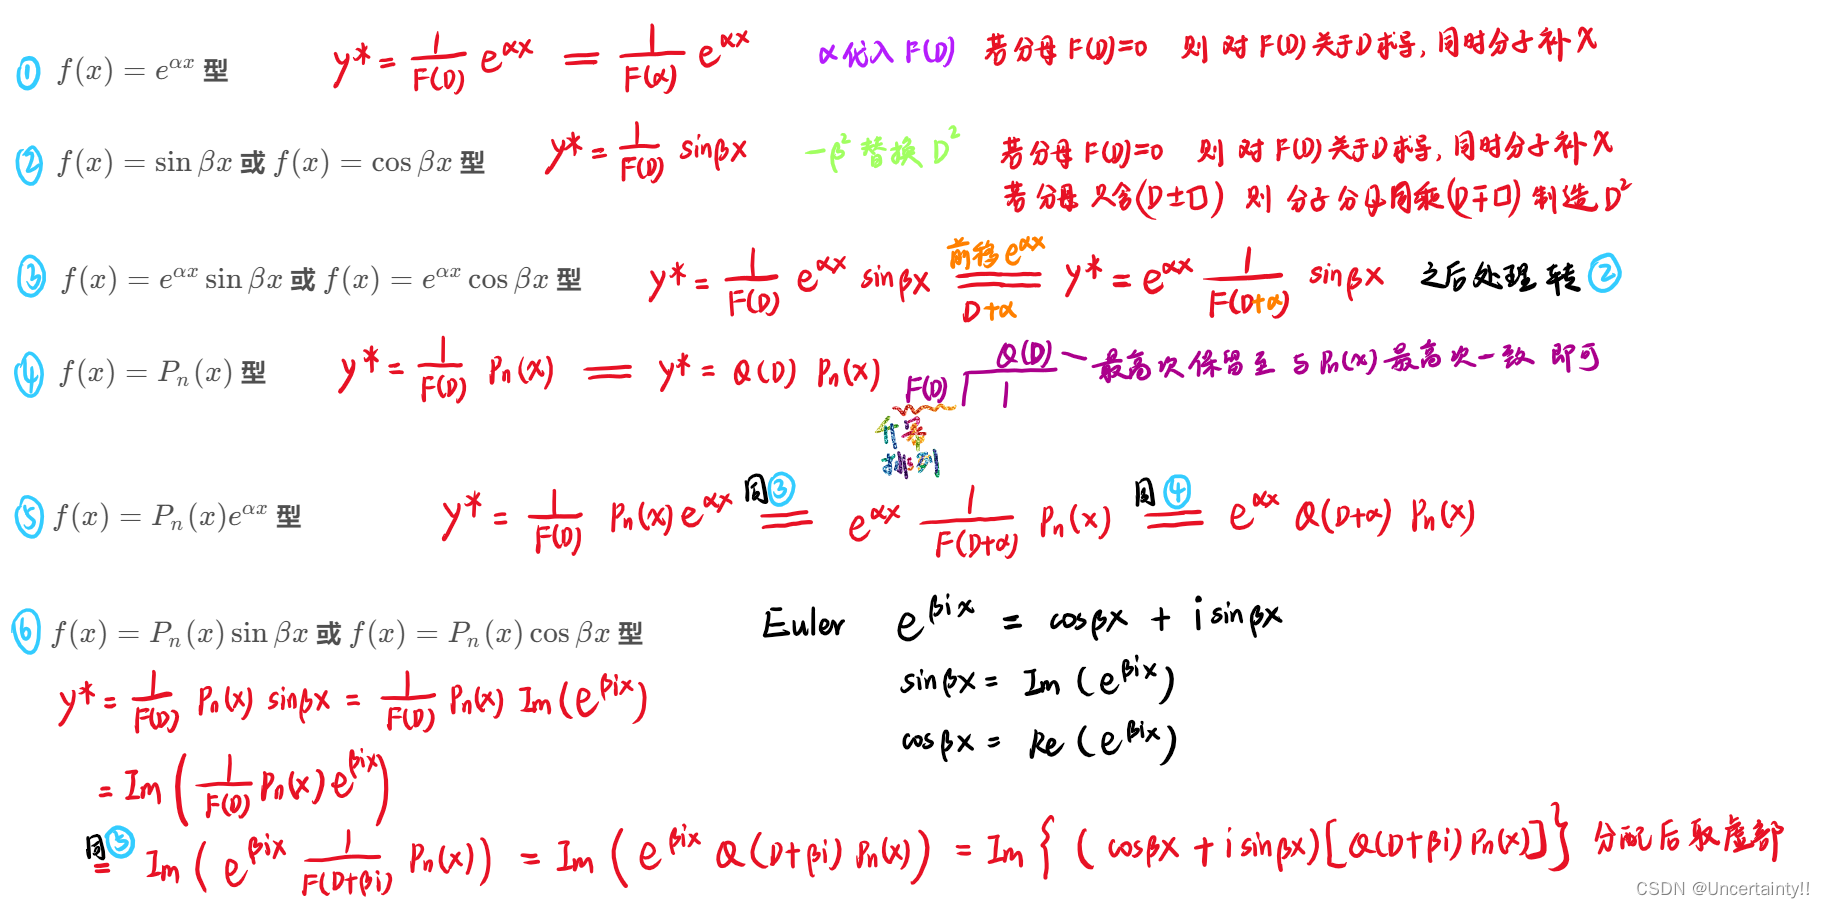 ① f(x) = e^{αx} 型 y* = \frac{1}{F(D)} e^{αx} = \frac{1}{F(α)} e^{αx} α代入 F(D) 若分母 F(D)=0 则 对 F(D) 关于D求导, 同时分子补 X
② f(x) = sin βx 或 f(x) = cos βx 型 y* = \frac{1}{F(D)} sinβx -β² 替换 D² 若分母 F(D)=0 则 对 F(D) 关于D求导, 同时分子补 X
若分母 只含(D±口) 则 分子分母同乘(D∓口) 制造 D²
③ f(x) = e^{αx} sin βx 或 f(x) = e^{αx} cos βx 型 y* = \frac{1}{F(D)} e^{αx} sinβx 前移 e^{αx} = D+α y* = e^{αx} \frac{1}{F(D+α)} sinβx 之后处理 转 ②
④ f(x) = P_n(x) 型 y* = \frac{1}{F(D)} P_n(x) = y* = Q(D) P_n(x) F(D) 1 Q(D) 最高次保留至 与 P_n(x) 最高次一致 即可
升幂
排列
⑤ f(x) = P_n(x)e^{αx} 型 y* = \frac{1}{F(D)} P_n(x) e^{αx} 同③ = e^{αx} \frac{1}{F(D+α)} P_n(x) 同④ = e^{αx} Q(D+α) P_n(x)
⑥ f(x) = P_n(x) sin βx 或 f(x) = P_n(x) cos βx 型 Euler e^{βix} = cosβx + i sinβx
sinβx = Im (e^{βix})
cosβx = Re (e^{βix})
y* = \frac{1}{F(D)} P_n(x) sinβx = \frac{1}{F(D)} P_n(x) Im(e^{βix})
= Im ( \frac{1}{F(D)} P_n(x) e^{βix} )
同⑤ = Im ( e^{βix} \frac{1}{F(D+βi)} P_n(x) ) = Im ( e^{βix} Q(D+βi) P_n(x) ) = Im { ( cosβx + i sinβx) [Q(D+βi) P_n(x)] } 分配后取虚部
CSDN @Uncertainty!!